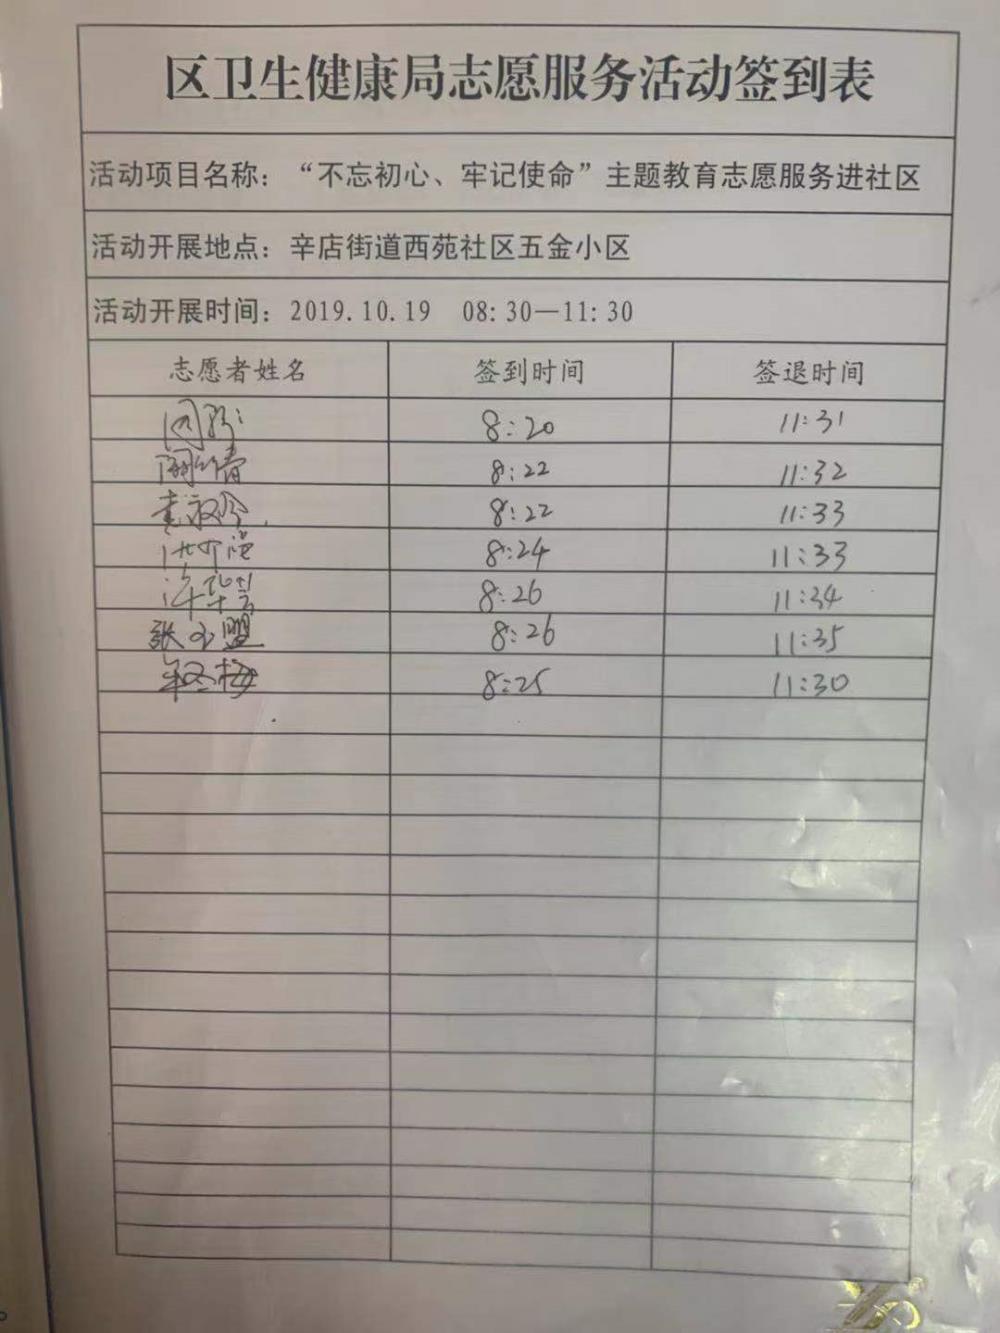 区卫生健康局志愿服务活动签到表
活动项目名称：“不忘初心、牢记使命”主题教育志愿服务进社区
活动开展地点：辛店街道西苑社区五金小区
活动开展时间：2019.10.19 08:30—11:30
志愿者姓名 签到时间 签退时间
8:20 11:31
8:22 11:32
8:22 11:33
8:24 11:33
8:26 11:34
张玉盟 8:26 11:35
8:25 11:30